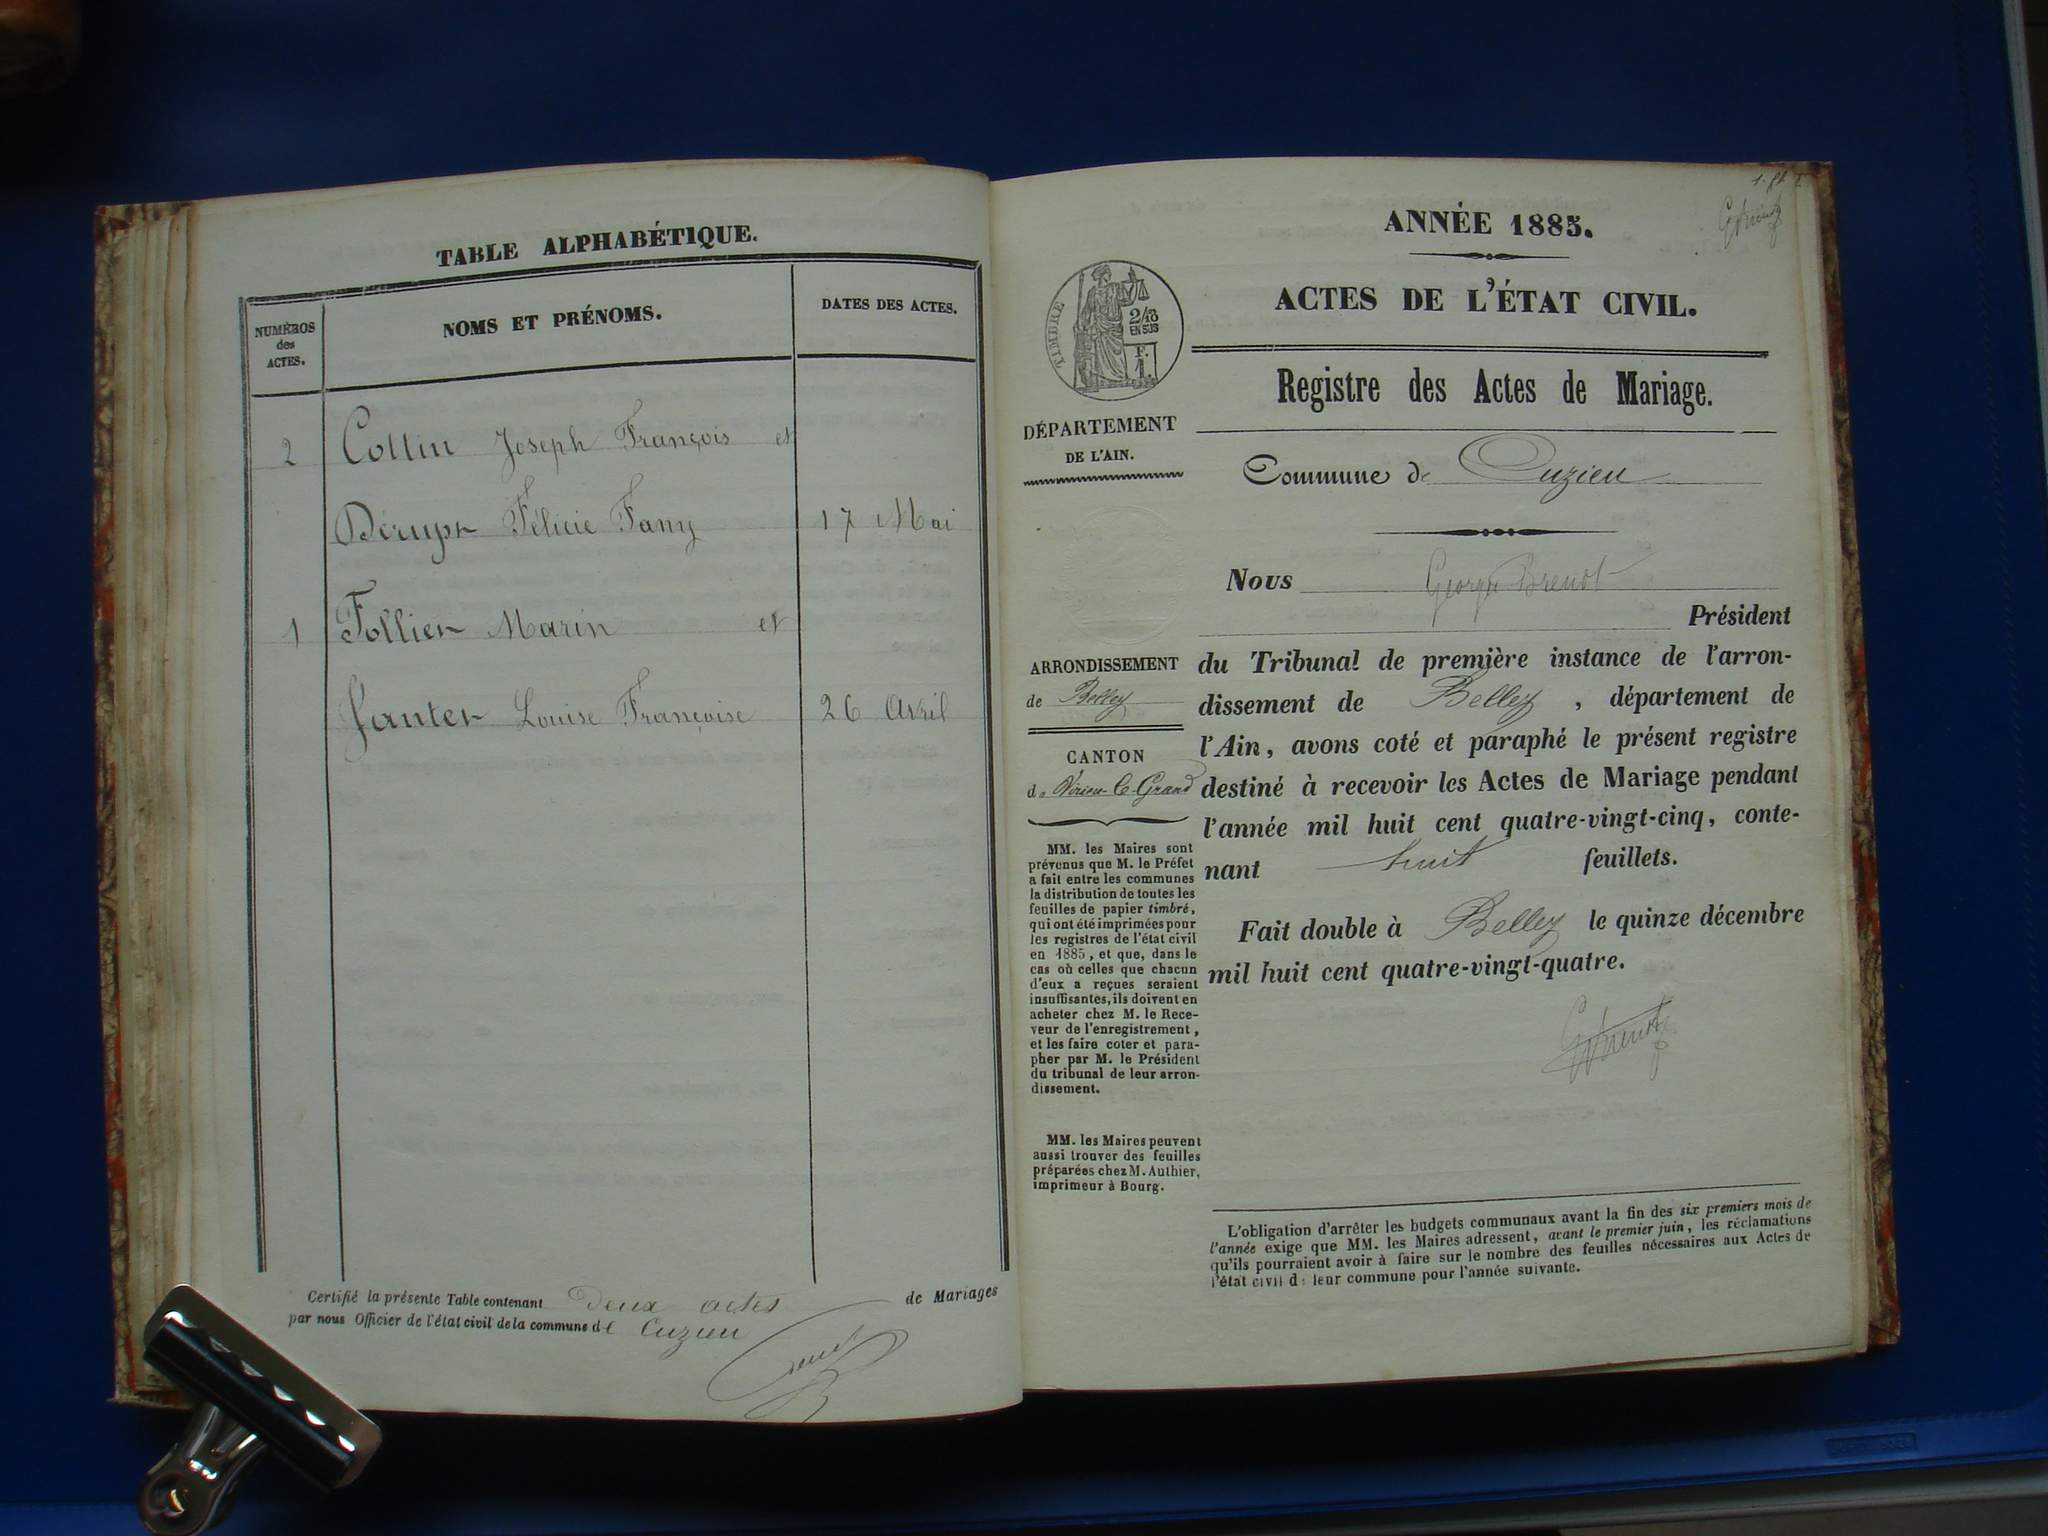 TABLE ALPHABÉTIQUE.
NUMÉROS
des
ACTES.
NOMS ET PRÉNOMS.
DATES DES ACTES.
2 Collin Joseph François et
Félicie Fany 17 Mai
1 Follier Marin et
Louise Françoise 26 Avril
Certifié la présente Table contenant deux actes de Mariages
par nous Officier de l'état civil de la commune de Cuzieu
ANNÉE 1885.
ACTES DE L'ÉTAT CIVIL.
TIMBRE
2/10
EN SUS
F.
1.
Registre des Actes de Mariage.
DÉPARTEMENT
DE L'AIN.
Commune de Cuzieu
Nous George Brenot
Président
du Tribunal de première instance de l'arron-
dissement de Belley, département de
l'Ain, avons coté et paraphé le présent registre
destiné à recevoir les Actes de Mariage pendant
l'année mil huit cent quatre-vingt-cinq, conte-
nant huit feuillets.
Fait double à Belley le quinze décembre
mil huit cent quatre-vingt-quatre.
GBrenot
ARRONDISSEMENT
de Belley
CANTON
de Virieu-le-Grand
MM. les Maires sont
prévenus que M. le Préfet
a fait entre les communes
la distribution de toutes les
feuilles de papier timbré,
qui ont été imprimées pour
les registres de l'état civil
en 1885, et que, dans le
cas où celles que chacun
d'eux a reçues seraient
insuffisantes, ils doivent en
acheter chez M. le Rece-
veur de l'enregistrement,
et les faire coter et para-
pher par M. le Président
du tribunal de leur arron-
dissement.
MM. les Maires peuvent
aussi trouver des feuilles
préparées chez M. Authier,
imprimeur à Bourg.
L'obligation d'arrêter les budgets communaux avant la fin des six premiers mois de
l'année exige que MM. les Maires adressent, avant le premier juin, les réclamations
qu'ils pourraient avoir à faire sur le nombre des feuilles nécessaires aux Actes de
l'état civil de leur commune pour l'année suivante.